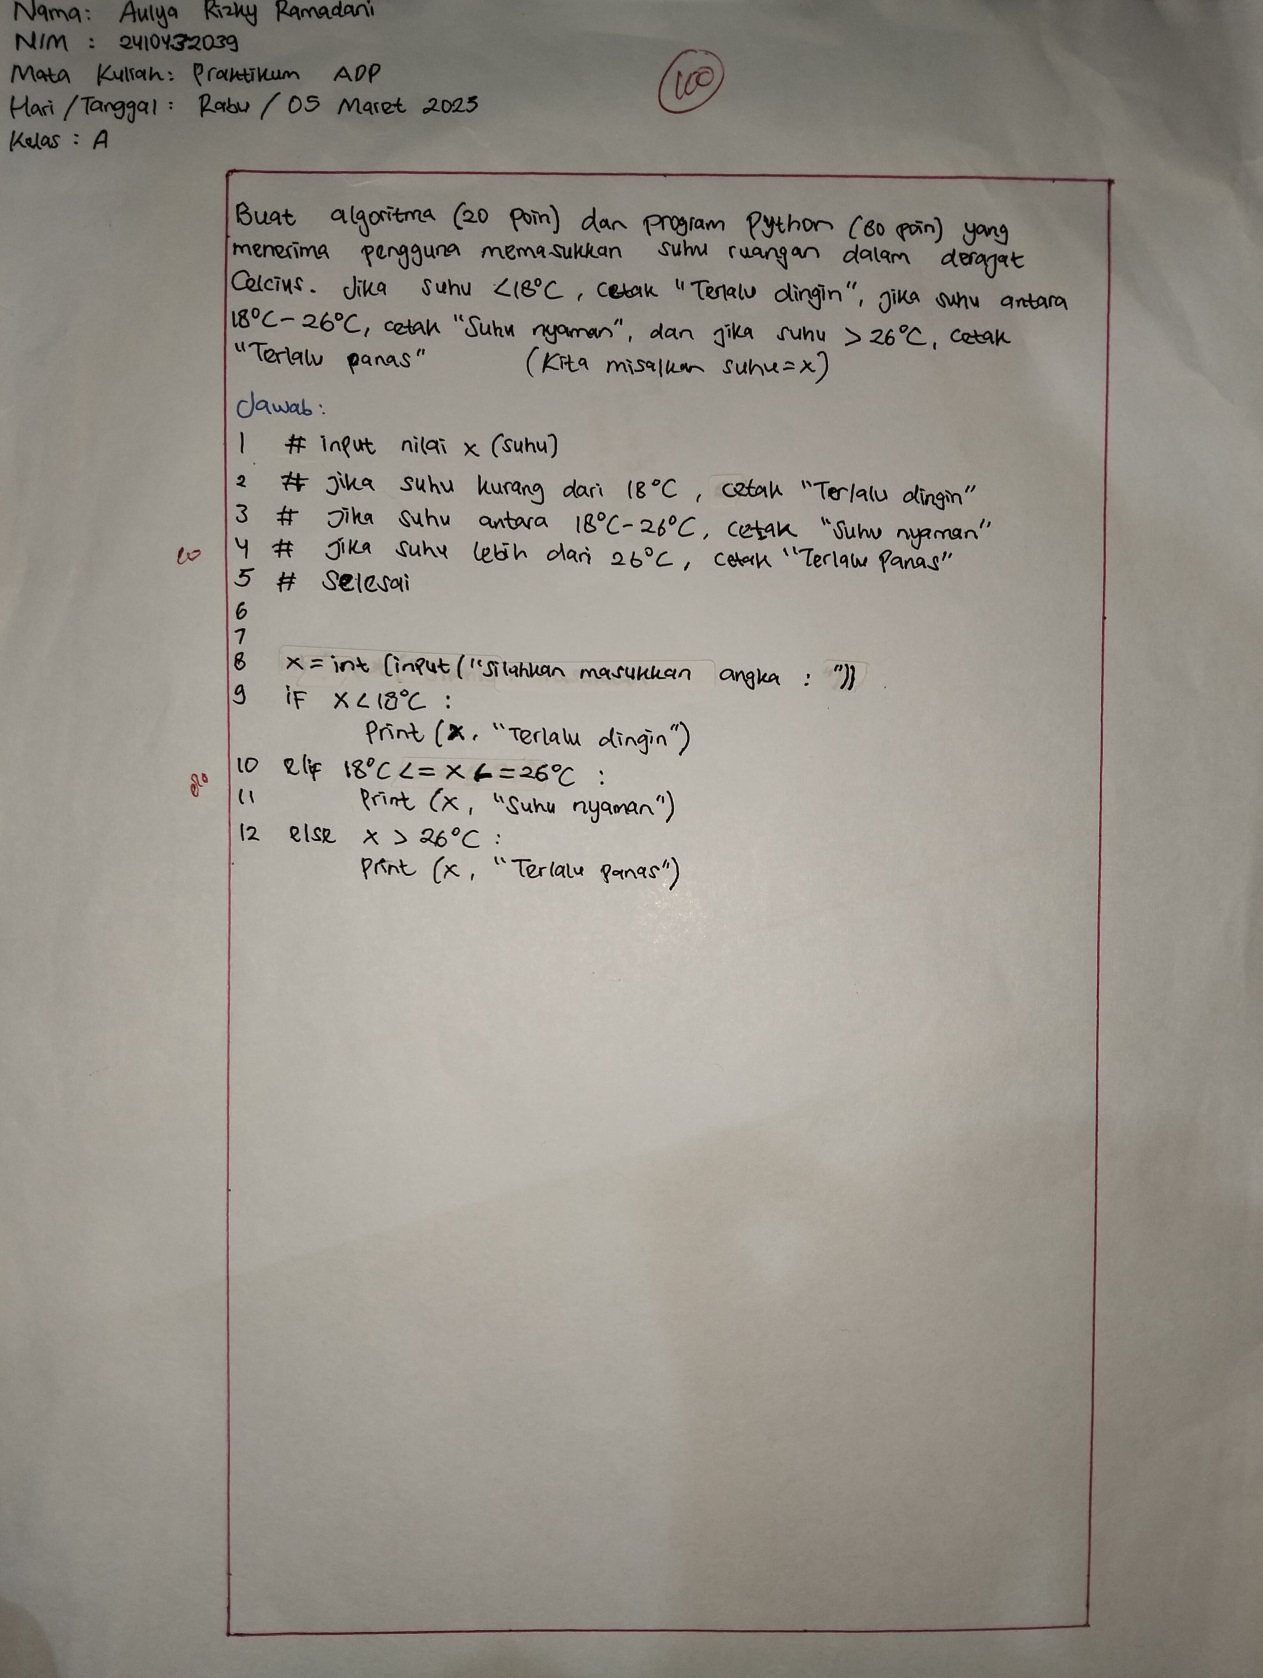 Nama: Aulya Rizky Ramadani
NIM : 2410432039
Mata Kuliah: Praktikum ADP
Hari/Tanggal: Rabu/05 Maret 2025
Kelas : A
100
Buat algoritma (20 poin) dan program Python (80 poin) yang
menerima pengguna memasukkan suhu ruangan dalam derajat
Celcius. Jika suhu <18°C, cetak "Terlalu dingin", jika suhu antara
18°C-26°C, cetak "Suhu nyaman", dan jika suhu > 26°C, cetak
"Terlalu panas" (Kita misalkan suhu=x)
Jawab:
1 # input nilai x (suhu)
2 # jika suhu kurang dari 18°C, cetak "Terlalu dingin"
3 # Jika suhu antara 18°C-26°C, cetak "Suhu nyaman"
20 4 # Jika suhu lebih dari 26°C, cetak "Terlalu Panas"
5 # Selesai
6
7
8 x = int (input ("Silahkan masukkan angka : "))
9 if x < 18°C :
Print (x, "Terlalu dingin")
80 10 elif 18°C <= x <= 26°C :
11 Print (x, "Suhu nyaman")
12 else x > 26°C :
Print (x, "Terlalu panas")